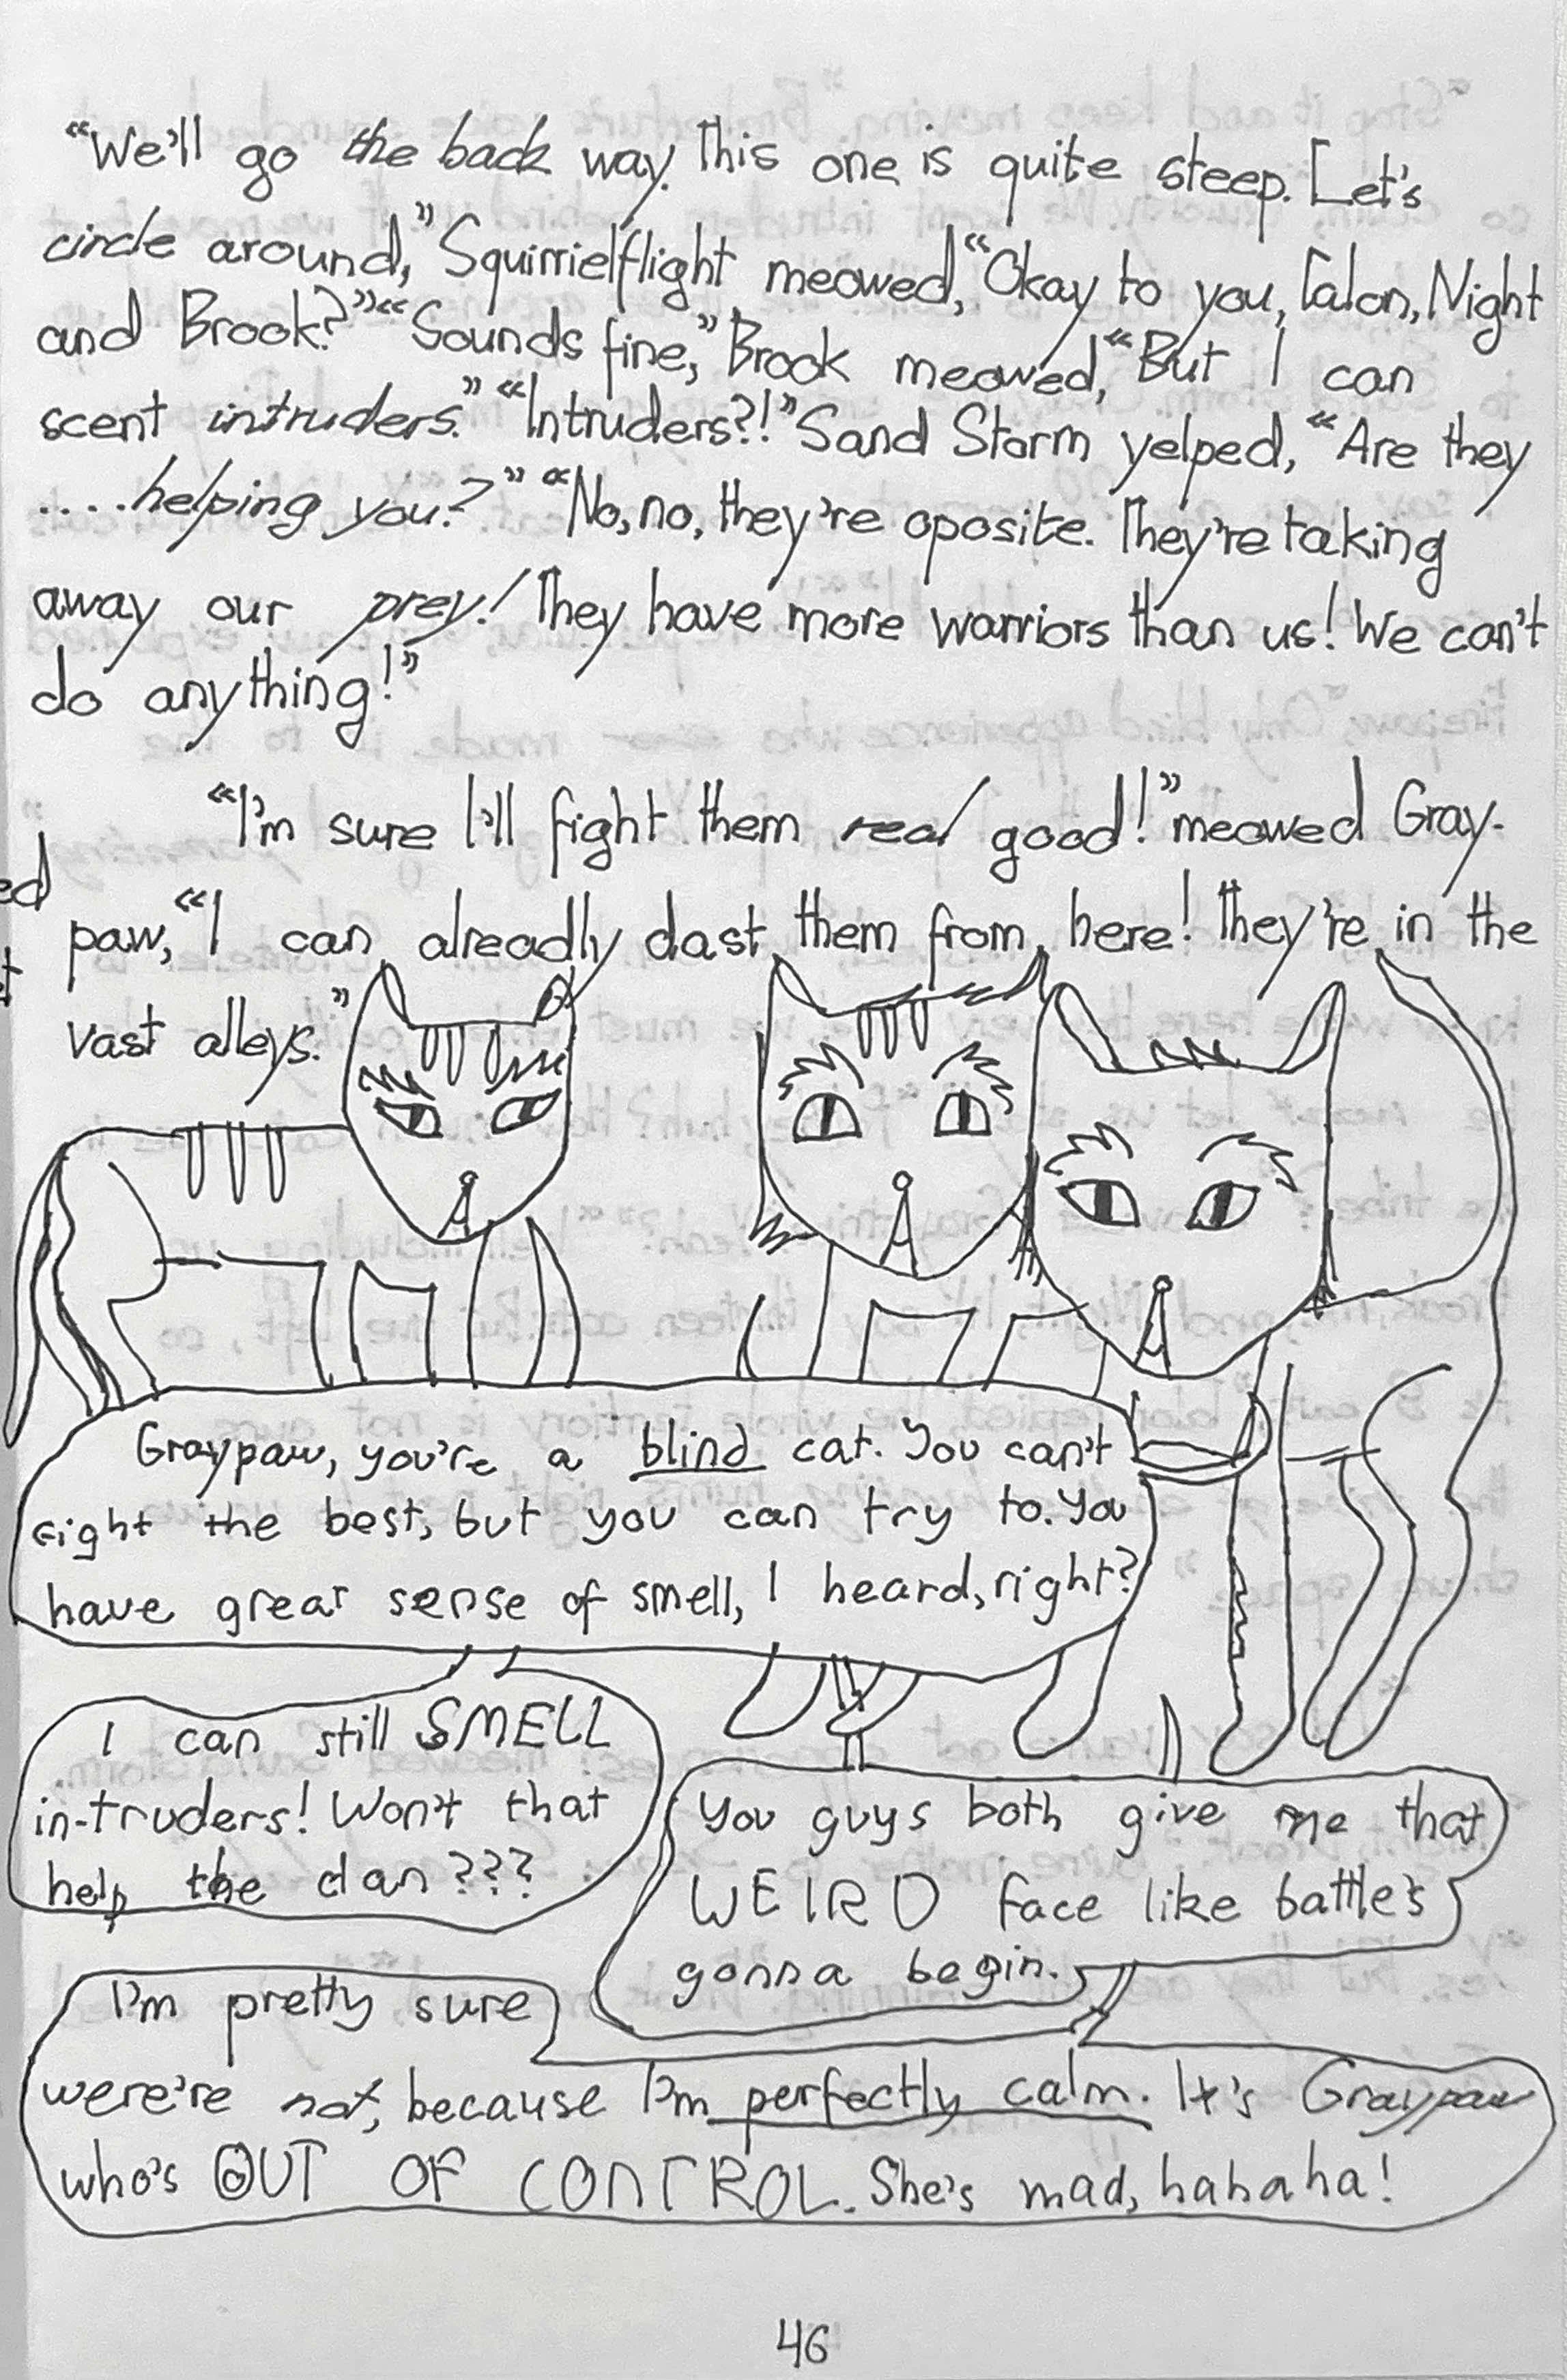 “We’ll go the back way. This one is quite steep. Let’s
circle around,” Squirrielflight meowed, “Okay to you, Talon, Night
and Brook?” “Sounds fine,” Brook meowed, “But I can
scent intruders.” “Intruders?!” Sand Storm yelped, “Are they
....helping you?” “No, no, they’re oposite. They’re taking
away our prey! They have more warriors than us! We can’t
do anything!”
“I’m sure I’ll fight them real good!” meowed Gray-
paw, “I can alreadly dast them from here! They’re in the
vast alleys.”
Graypaw, you’re a blind cat. You can’t
fight the best, but you can try to. You
have great sense of smell, I heard, right?
I can still SMELL
in-truders! Won’t that
help the clan???
You guys both give me that
WEIRD face like battle’s
gonna begin.
I’m pretty sure
were’re not, because I’m perfectly calm. It’s Graypaw
who’s OUT OF CONTROL. She’s mad, hahaha!
46